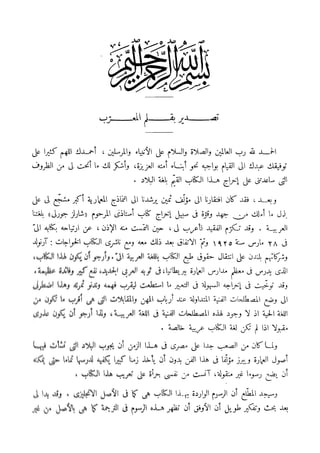 بسم الله الرحمن الرحيم
تصدير بقلم المعرب
الحمد لله رب العالمين والصلاة والسلام على الأنبياء والمرسلين ، أحمدك اللهم كثيرا على
توفيقك عبدك الى القيام بواجبه نحو أبناء أمته العزيزة، وأشكر لك ما أتحت لى من الظروف
التى ساعدتنى على إخراج هذا الكتاب القيم بلغة البلاد .
وبعد ، فقد كان افتقارنا الى مؤلف ثمين يرشدنا الى النماذج المعمارية أكبر مشجع لى على
بذل ما أملك من جهد وقوة فى سبيل إخراج كتاب أستاذى المرحوم (شارلز جورلى) بلغتنا
العربية . وقد تكرم الفقيد لى ، حين التمست منه الإذن ، عن ارتياحه بكتابه الى
فى ٢٨ مارس سنة ١٩٢٥ وتم الاتفاق بعد ذلك معه ومع ناشرى الكتاب الخواجات : أرنولد
وشركائهم بلندن على انتقال حقوق طبع الكتاب باللغة العربية الى . وأرجو أن يكون لهذا الكتاب،
الذى يدرس فى معظم مدارس العمارة ببريطانيا، فى ثوبه العربى الجديد، نفع كبير وفائدة عظيمة.
وقد توخيت فى إخراجه السهولة فى التعبير ما استطعت ليقرب فهمه وتدنو ثمرته ولهذا اضطررت
الى وضع المصطلحات الفنية المتداولة عند أرباب المهن والمقابلات التى هى أقرب ما تكون من
اللغة الحية إذ لا وجود لهذه المصطلحات الفنية فى اللغة العربية. ولذا أرجو أن يكون عذرى
مقبولا اذا لم تكن لغة الكتاب عربية خالصة .
ولما كان من الصعب جدا على مصرى فى هذا الزمن أن يجوب البلاد التى نشأت فيها
أصول العمارة ويبرز مؤلفا فى هذا الفن بدون أن يأخذ زمنا كبيرا يكفيه لدرسها تماما حتى يمكنه
أن يضع رسوما غير منقولة، آنست من نفسى جرأة على تعريب هذا الكتاب .
وسيجد المطلع أن الرسوم الواردة بهذا الكتاب هى كما فى الأصل الانجليزى ، وقد بدا لى
بعد بحث وتفكير طويل أن الأوفق أن تظهر هذه الرسوم فى الترجمة كما هى بالأصل من غير